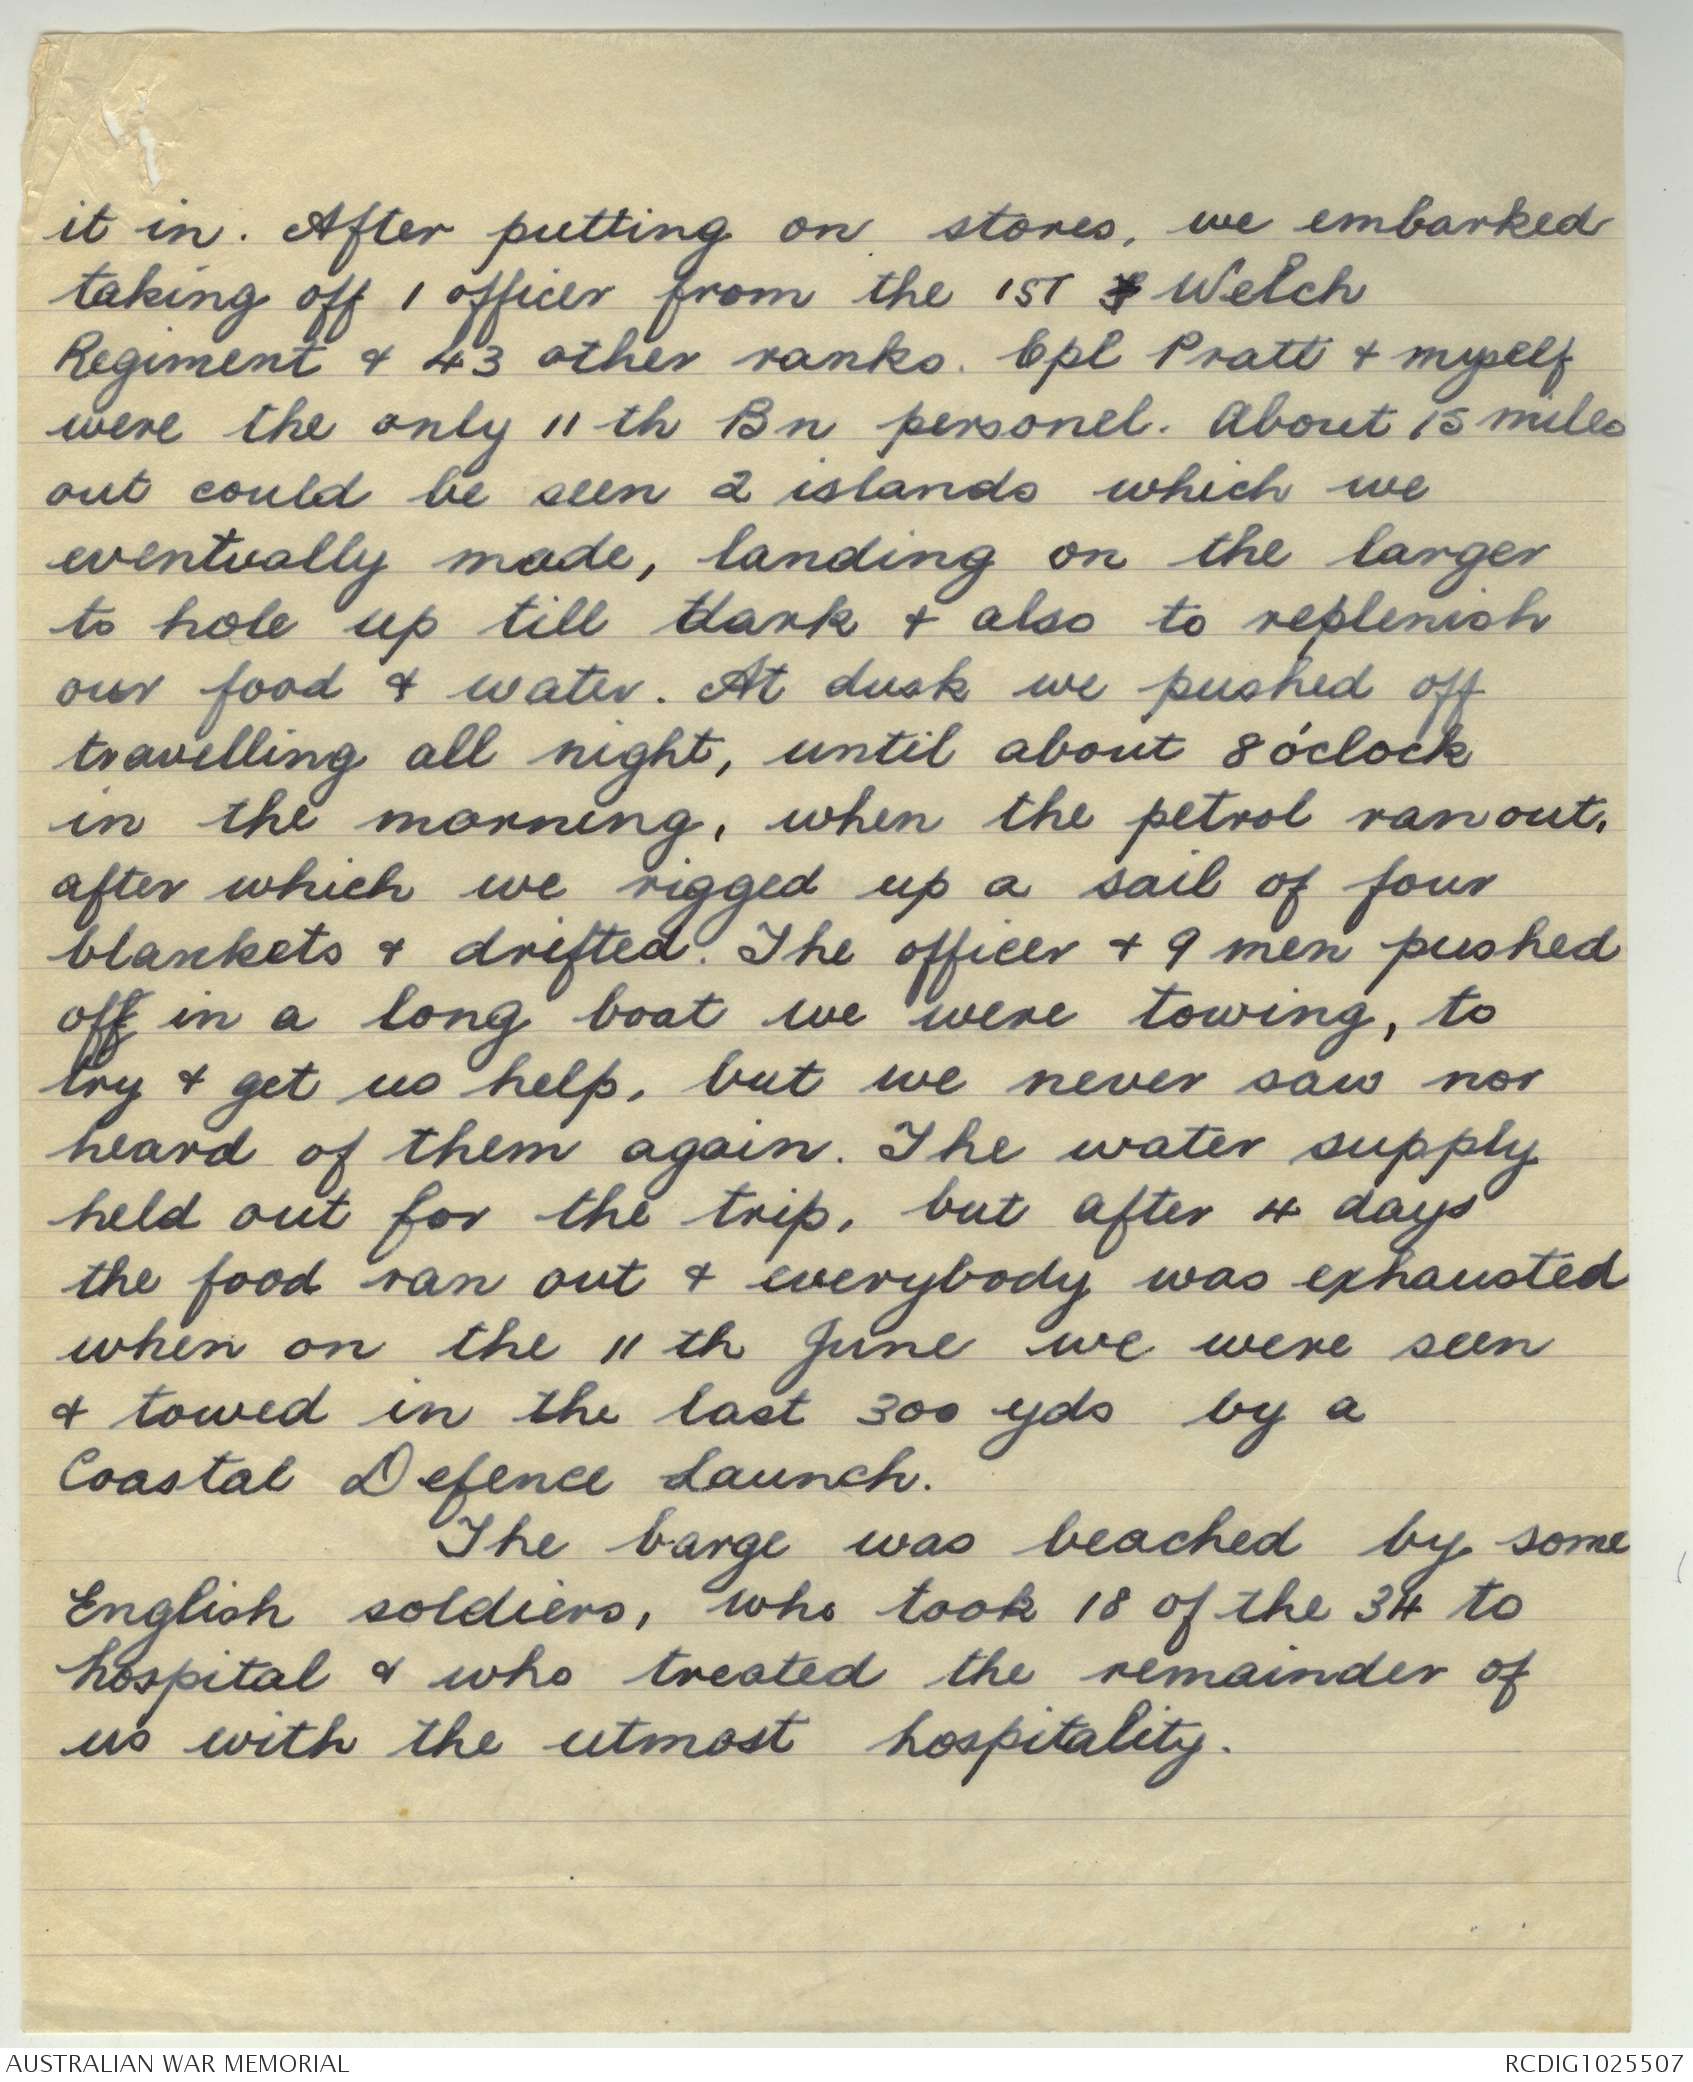 it in. After putting on stores, we embarked
taking off 1 officer from the 1ST Welch
Regiment & 43 other ranks. Cpl Pratt & myself
were the only 11th Bn personel. About 15 miles
out could be seen 2 islands which we
eventually made, landing on the larger
to hole up till dark & also to replenish
our food & water. At dusk we pushed off
travelling all night, until about 8 o'clock
in the morning, when the petrol ran out,
after which we rigged up a sail of four
blankets & drifted. The officer & 9 men pushed
off in a long boat we were towing, to
try & get us help, but we never saw nor
heard of them again. The water supply
held out for the trip, but after 4 days
the food ran out & everybody was exhausted
when on the 11th June we were seen
& towed in the last 300 yds by a
Coastal Defence Launch.
The barge was beached by some
English soldiers, who took 18 of the 34 to
hospital & who treated the remainder of
us with the utmost hospitality.
AUSTRALIAN WAR MEMORIAL
RCDIG1025507